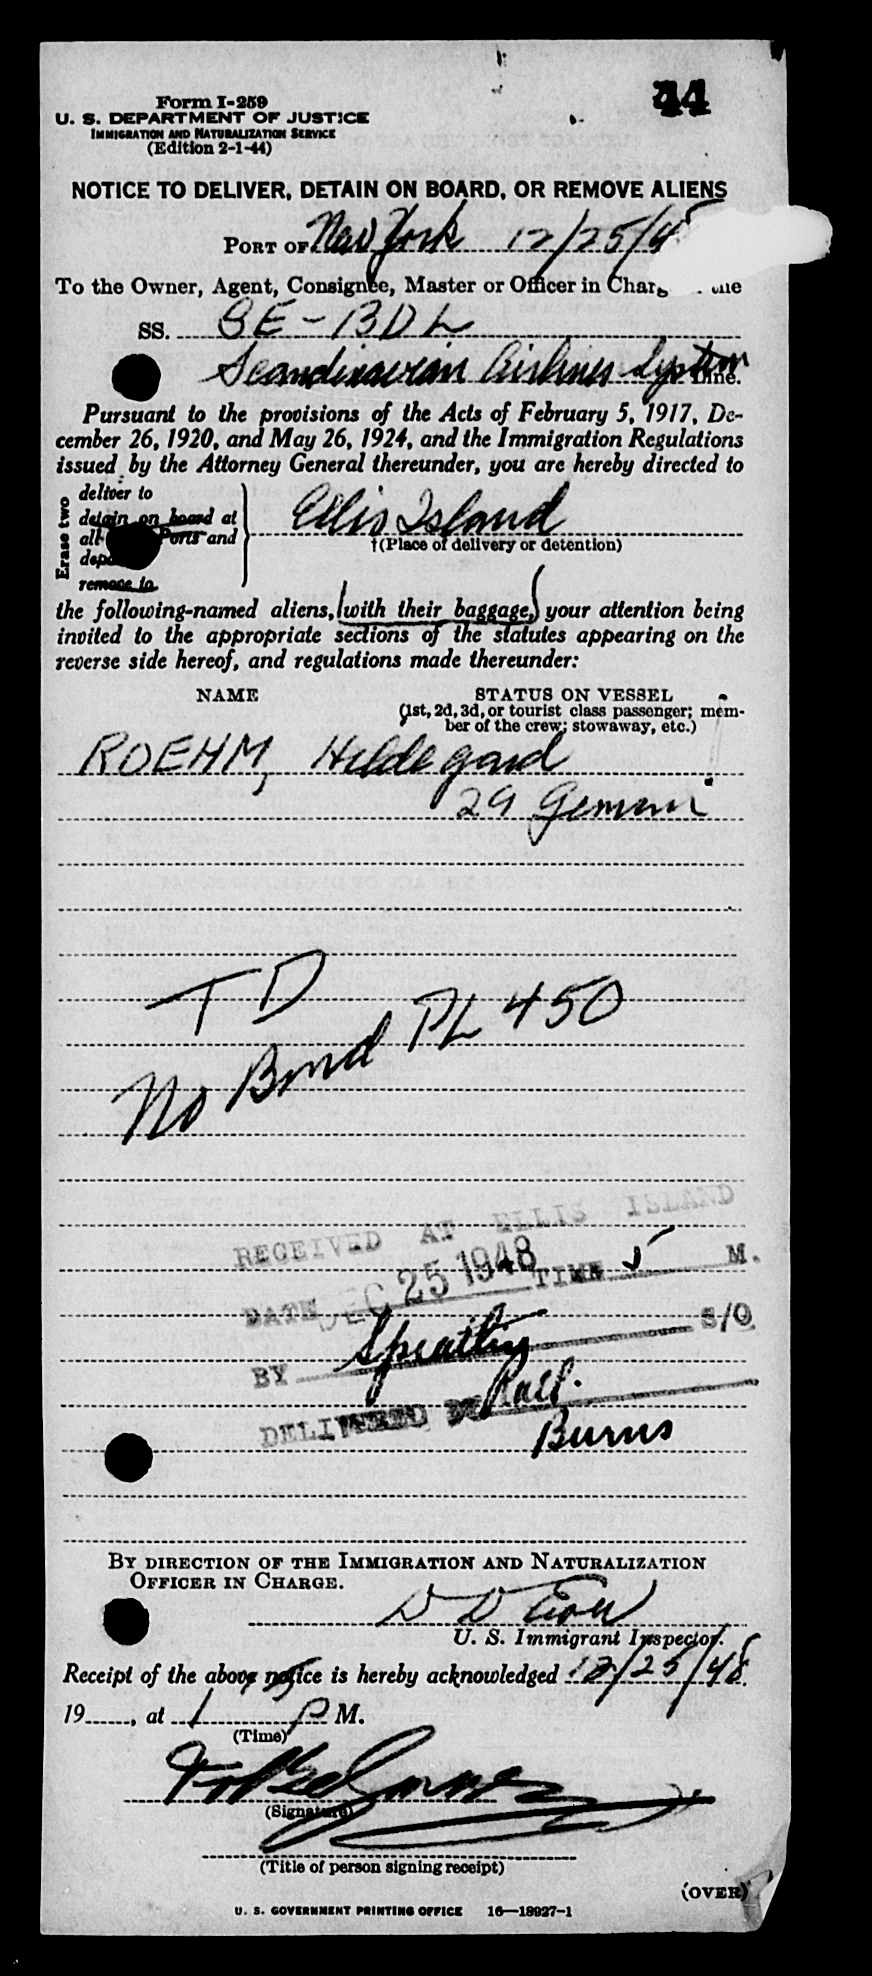 44
Form I-259
U. S. DEPARTMENT OF JUSTICE
IMMIGRATION AND NATURALIZATION SERVICE
(Edition 2-1-44)
NOTICE TO DELIVER, DETAIN ON BOARD, OR REMOVE ALIENS
PORT OF New York 12/25/4
To the Owner, Agent, Consignee, Master or Officer in Charg the
SS. SE-BDL
Scandinavian Airlines System Line.
Pursuant to the provisions of the Acts of February 5, 1917, De-
cember 26, 1920, and May 26, 1924, and the Immigration Regulations
issued by the Attorney General thereunder, you are hereby directed to
Erase two
deliver to
detain on board at
all Ports and
remove to
Ellis Island
†(Place of delivery or detention)
the following-named aliens, (with their baggage,) your attention being
invited to the appropriate sections of the statutes appearing on the
reverse side hereof, and regulations made thereunder:
NAME STATUS ON VESSEL
(1st, 2d, 3d, or tourist class passenger; mem-
ber of the crew; stowaway, etc.)
ROEHM, Hildegard
29 German
TD
No Bond PL 450
RECEIVED AT ELLIS ISLAND
DATE DEC 25 1948 TIME 5 M.
BY S/O
DELIVERED BY
Burns
BY DIRECTION OF THE IMMIGRATION AND NATURALIZATION
OFFICER IN CHARGE.
U. S. Immigrant Inspector.
Receipt of the above notice is hereby acknowledged 12/25/48
19, at 1 P M.
(Time)
(Signature)
(Title of person signing receipt)
(OVER)
U. S. GOVERNMENT PRINTING OFFICE 16—18927-1